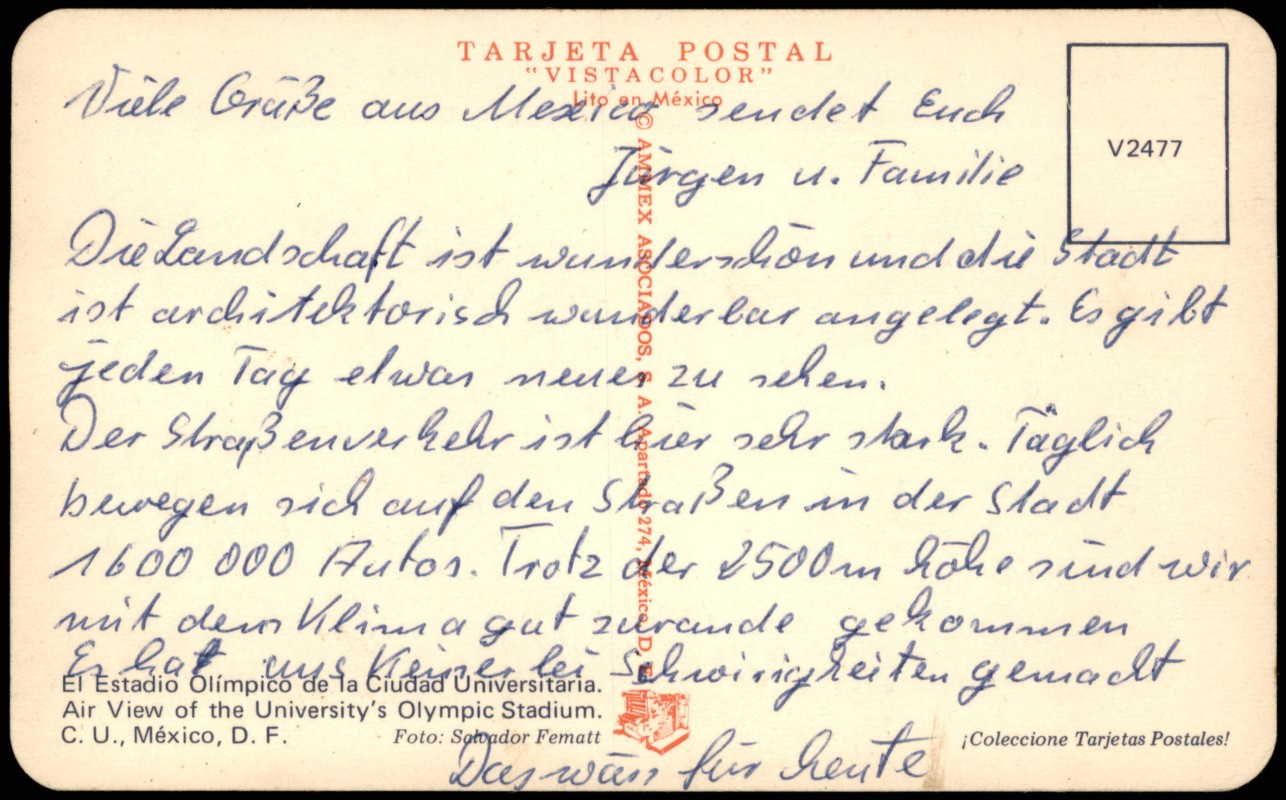 TARJETA POSTAL
"VISTACOLOR"
Lito en México
V2477
Viele Grüße aus Mexico sendet Euch
Jürgen u. Familie
Die Landschaft ist wunderschön und die Stadt
ist architektorisch wunderbar angelegt. Es gibt
jeden Tag etwas neues zu sehen.
Der Straßenverkehr ist hier sehr stark. Täglich
bewegen sich auf den Straßen in der Stadt
1600 000 Autos. Trotz der 2500m höhe sind wir
mit dem Klima gut zurande gekommen
Es hat uns Keinerlei Schwirigkeiten gemacht
Das wärs für heute
© AMMEX ASOCIADOS, S. A. Apartado 274, México, D. F.
El Estadio Olímpico de la Ciudad Universitaria.
Air View of the University's Olympic Stadium.
C. U., México, D. F. Foto: Salvador Fematt
¡Coleccione Tarjetas Postales!